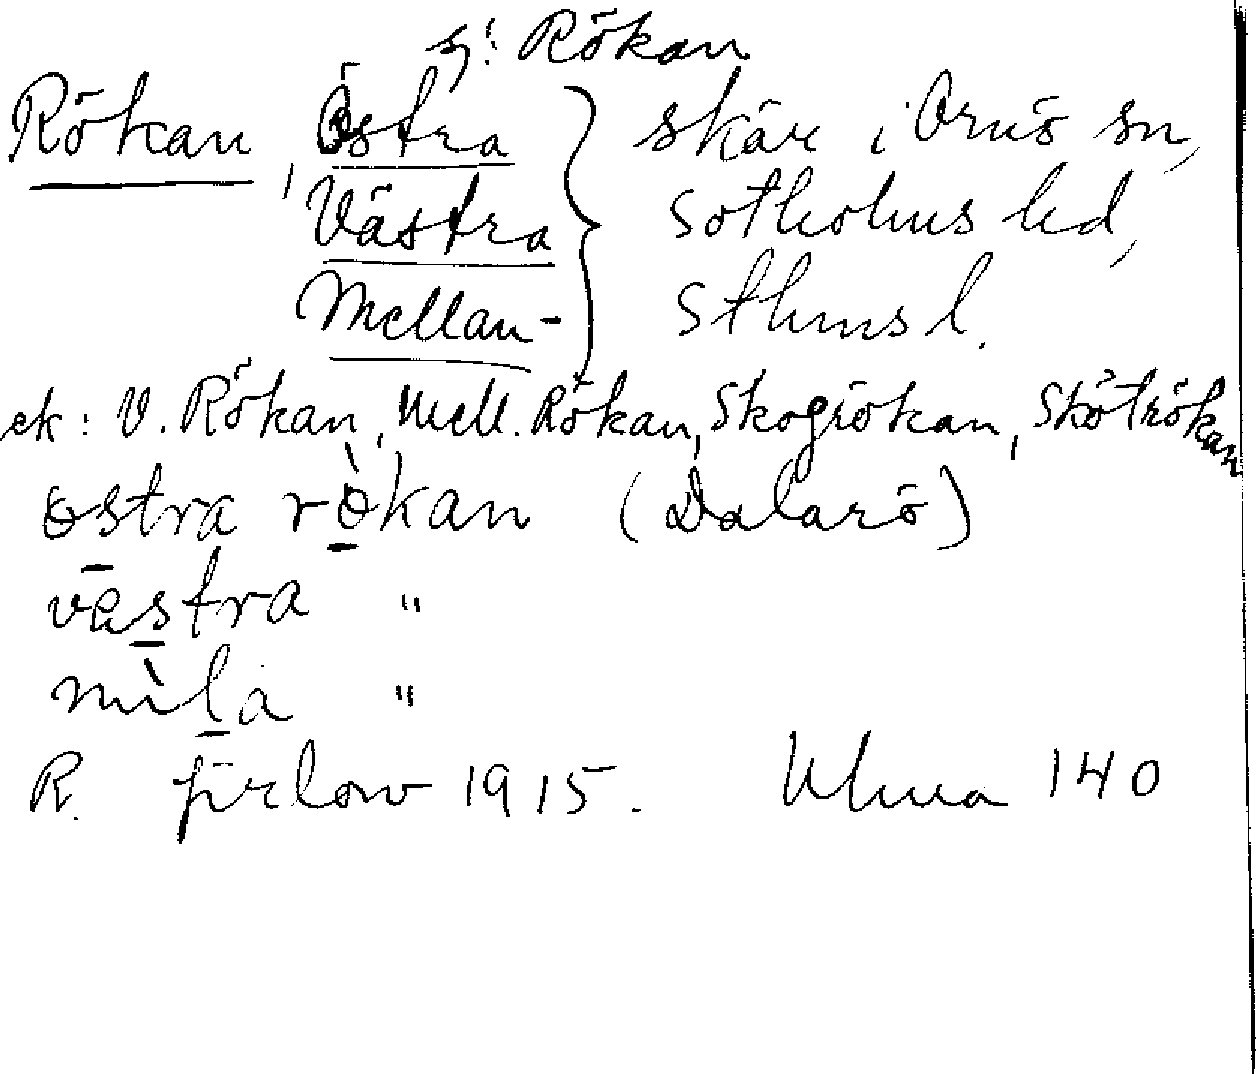 s: Rökan
Rökan, Östra } skär i Ornö sn,
Västra } Sotholms hd,
Mellan- } Sthms l.
ek: V. Rökan, Mell. Rökan, Skogrökan, Skötrökan
östra rökan (Dalarö)
västra "
mila "
R. 1915. Uhma 140